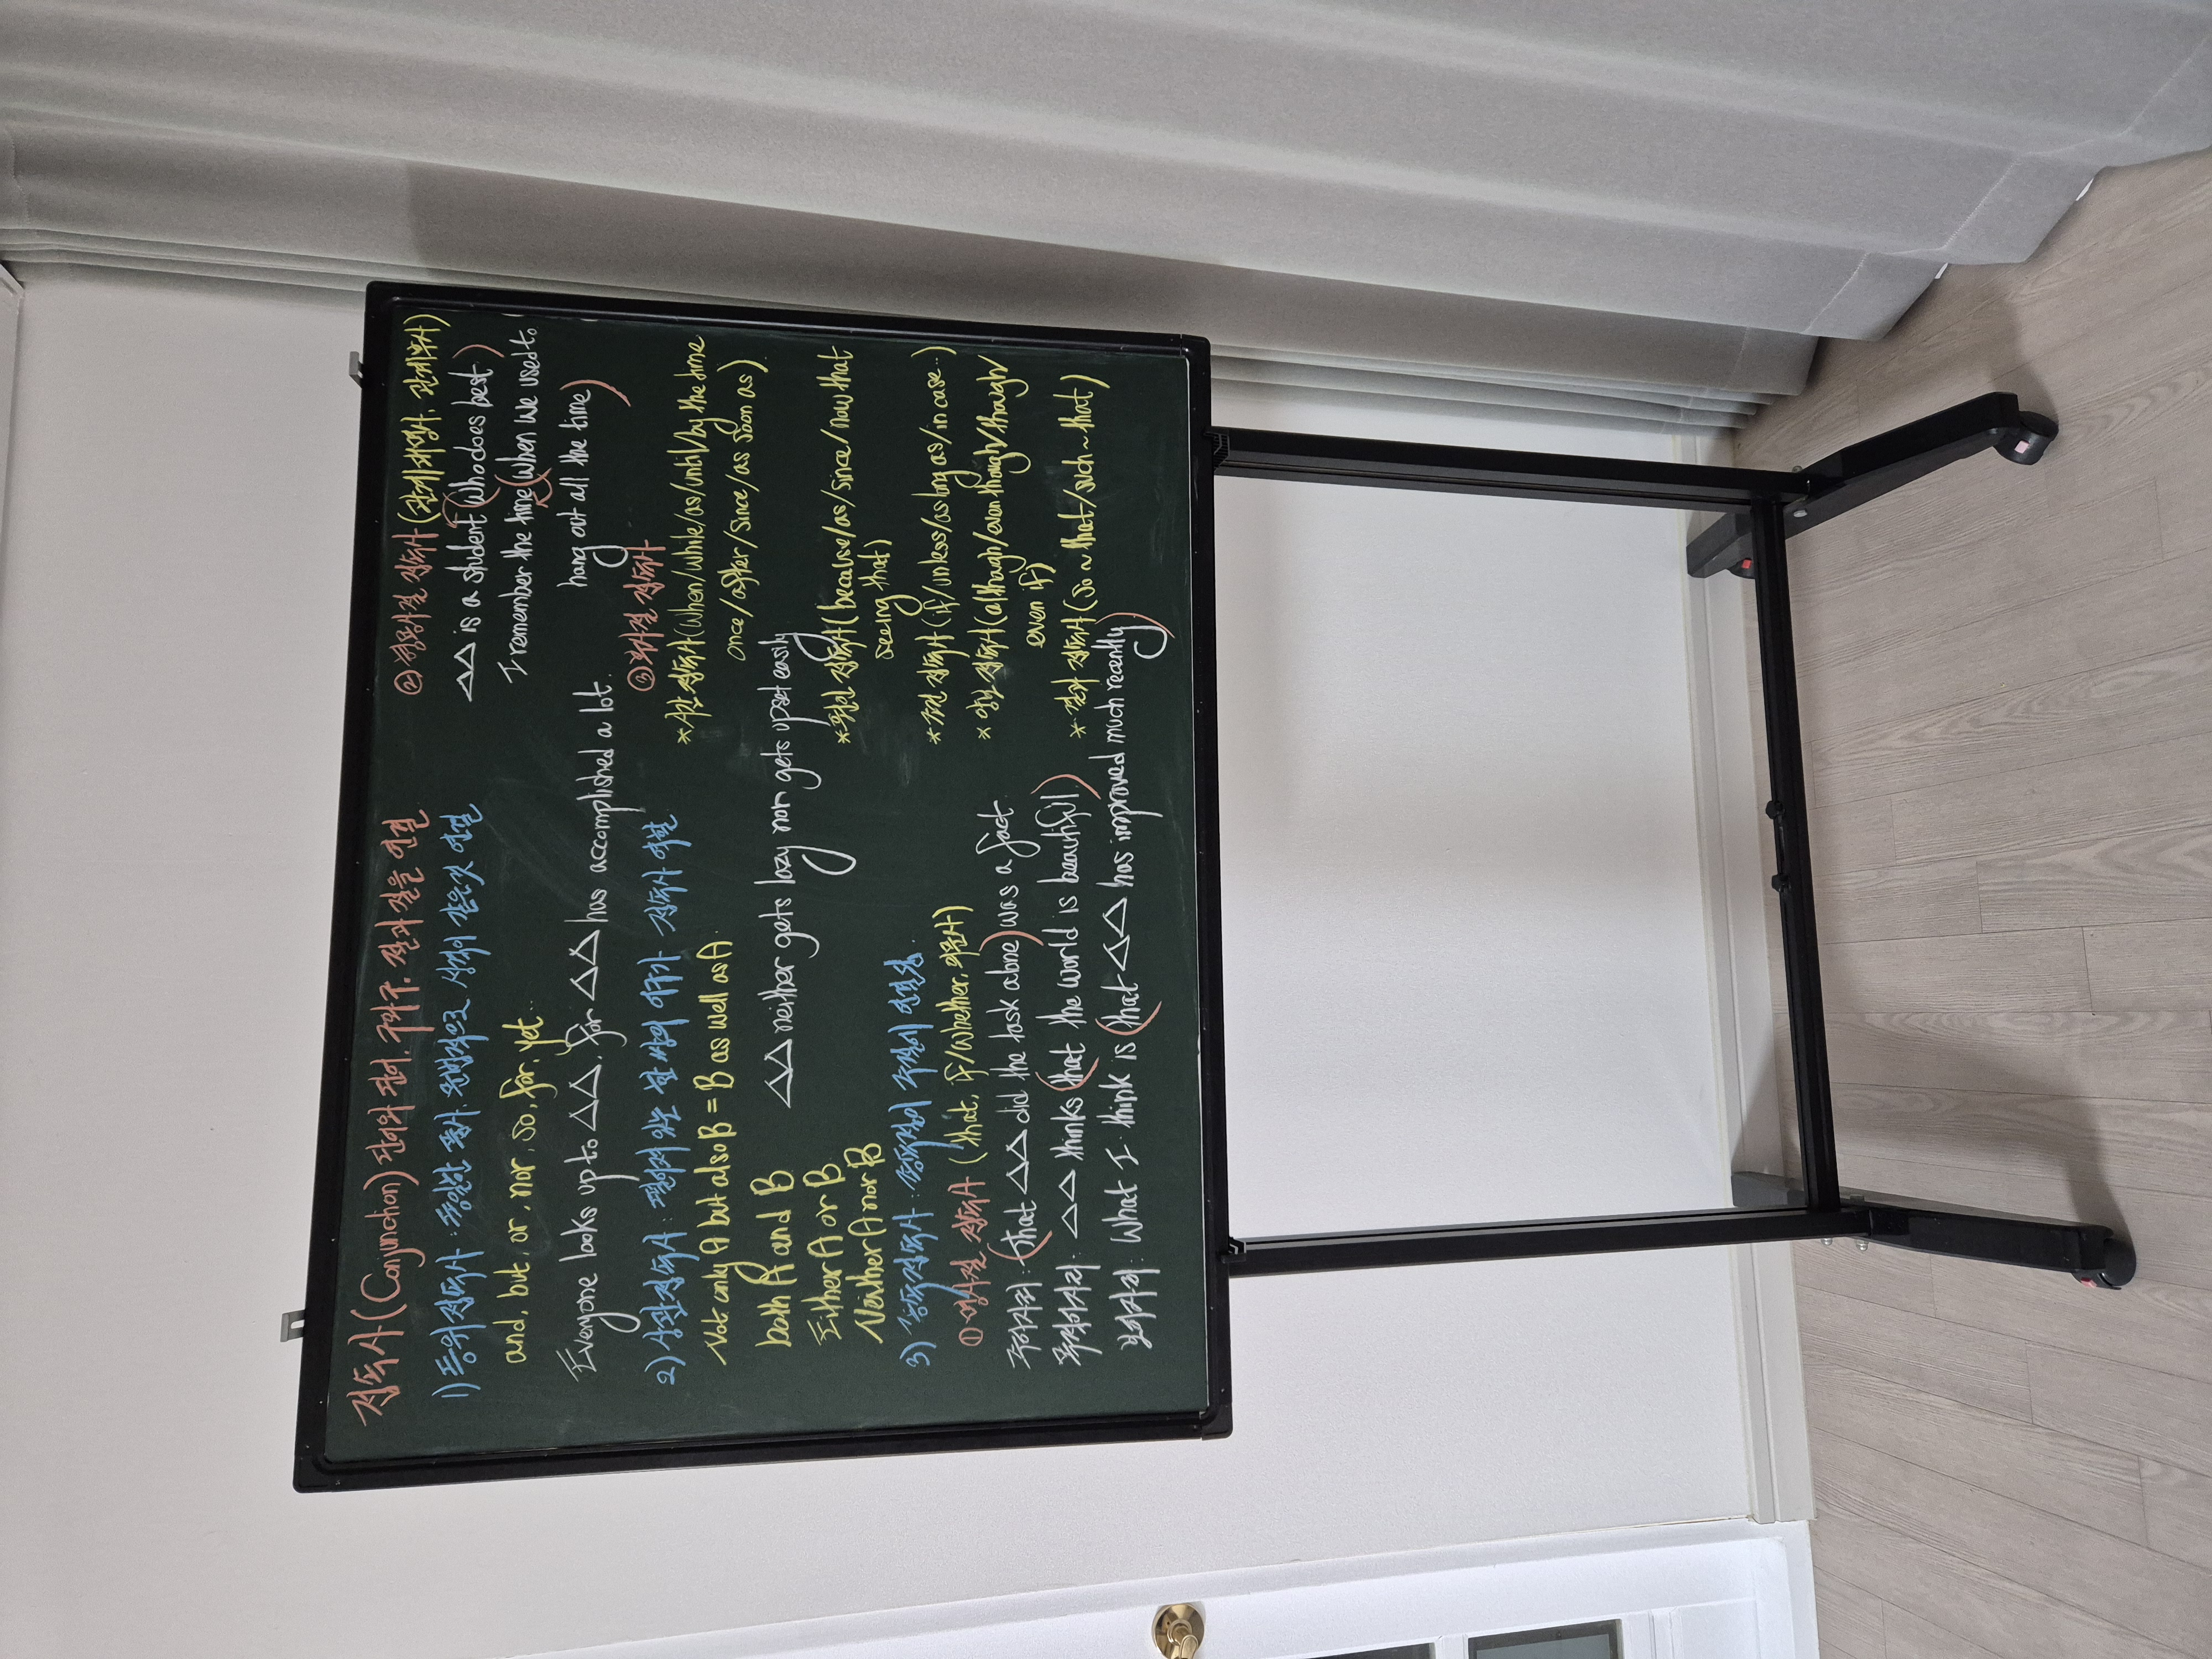 접속사(Conjunction) 단어와 단어, 구와 구, 절과 절을 연결
1) 등위접속사 : 동일한 품사, 문법적으로 성격이 같은것 연결
and, but, or, nor, so, for, yet.
Everyone looks up to △△, for △△ has accomplished a lot.
2) 상관접속사 : 떨어져 있는 한 쌍의 어구가 접속사 역할
Not only A but also B = B as well as A.
both A and B
Either A or B
Neither A nor B
△△ neither gets lazy nor gets upset easily
3) 종속접속사 : 종속절이 주절에 연결됨
① 명사절 접속사 (that, if/whether, 의문사)
주어자리 : (that △△ did the task alone) was a fact.
목적어자리 : △△ thinks (that the world is beautiful.)
보어자리 : What I think is (that △△ has improved much recently)
② 형용사절 접속사 (관계대명사, 관계부사)
△△ is a student (who does best.)
I remember the time (when we used to
hang out all the time)
③ 부사절 접속사
* 시간 접속사 (When/while/as/until/by the time
once/after/since/as soon as)
* 원인 접속사 (because/as/since/now that
seeing that)
* 조건 접속사 (if/unless/as long as/in case..)
* 양보 접속사 (although/even though/though/
even if)
* 결과 접속사 (so ~ that/such ~ that)